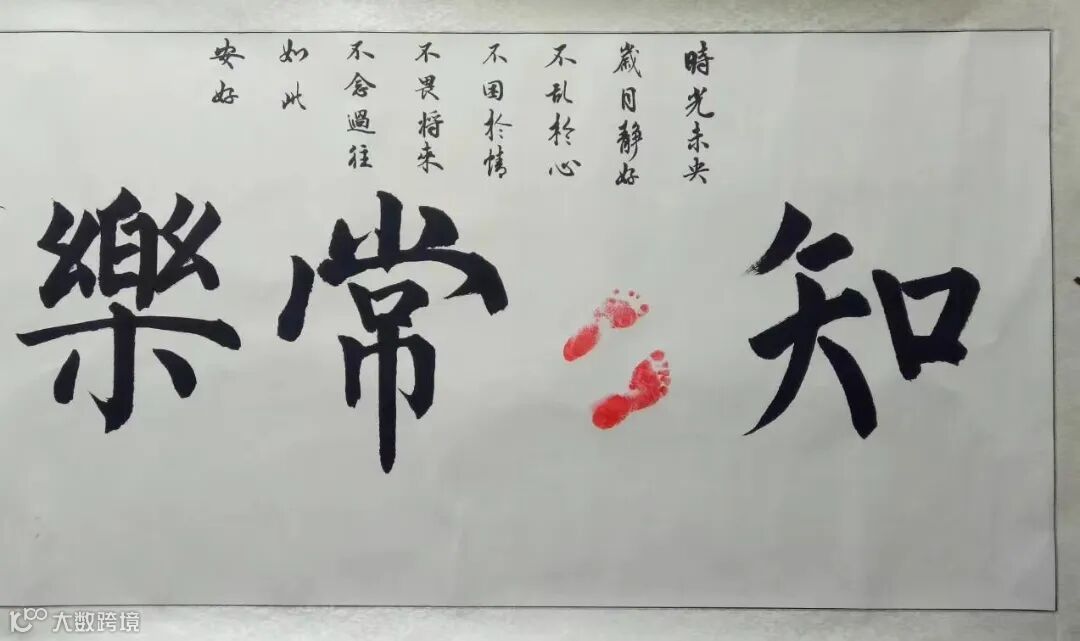 時光未央
歲月靜好
不乱於心
不困於情
不畏將來
不念過往
如此
安好
知 常樂
大数跨境